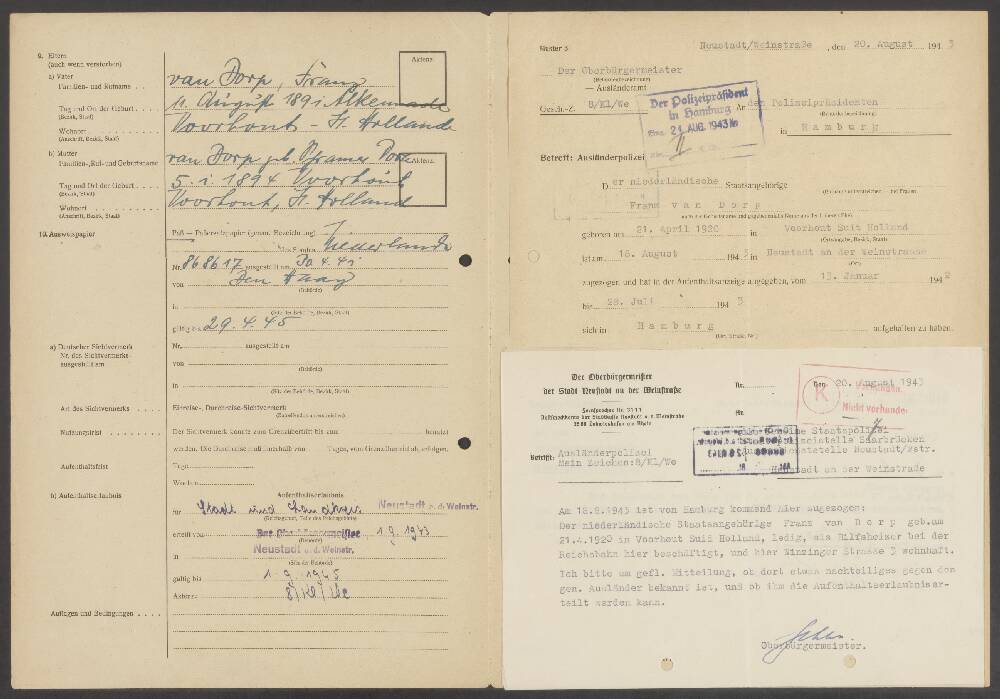 9. Eltern
(auch wenn verstorben)
a) Vater
Familien- und Rufname
van Dorp, Franz
Aktenz.
Tag und Ort der Geburt
(Bezirk, Staat)
11. August 1891 Alkemade
Wohnort
(Anschrift, Bezirk, Staat)
Voorhout - St. Hollande
b) Mutter
Familien-, Ruf- und Geburtsname
van Dorp geb.
Aktenz.
Tag und Ort der Geburt
(Bezirk, Staat)
5. 1. 1894 Voorhout
Wohnort
(Anschrift, Bezirk, Staat)
Voorhout, St. Holland
10. Ausweispapier
Paß — Paßersatzpapier (genaue Bezeichnung)
des Staates Niederlande
Nr. 868617 ausgestellt am 30.4.41
von Den Haag
(Behörde)
in
(Sitz der Behörde, Bezirk, Staat)
gültig bis 29.4.45
a) Deutscher Sichtvermerk
Nr. des Sichtvermerks
ausgestellt am
Nr. ausgestellt am
von
(Behörde)
in
(Sitz der Behörde, Bezirk, Staat)
Art des Sichtvermerks
Einreise-, Durchreise-Sichtvermerk
Nutzungsfrist
Der Sichtvermerk konnte zum Grenzübertritt bis zum benutzt
werden. Die Einreise muß innerhalb von Tagen, vom Grenzübertritt ab, erfolgen.
Aufenthaltsfrist
Tage
Wochen
b) Aufenthaltserlaubnis
Aufenthaltserlaubnis
für Stadt und Landkreis Neustadt a. d. Weinstr.
(Reichsgebiet, Teile des Reichsgebiets)
erteilt von Der Oberbürgermeister 1.9.1943
(Behörde)
in Neustadt a. d. Weinstr.
(Sitz der Behörde)
gültig bis 1.9.1945
Aktenz. 8/Kl/We
Auflagen und Bedingungen
Muster 3
Neustadt/Weinstraße, den 20. August 1943
Der Oberbürgermeister
(Behördenbezeichnung)
— Ausländeramt
Gesch.-Z. 8/Kl/We
Der Polizeipräsident
in Hamburg
Eing. 24. AUG. 1943
An den Polizeipräsidenten
(Behördenbezeichnung)
in Hamburg
Betreff: Ausländerpolizei
Der niederländische Staatsangehörige
Franz van Dorp
geboren am 21. April 1920 in Voorhout Suit Holland
(Ortsangabe, Bezirk, Staat)
ist am 18. August 1943 in Neustadt an der Weinstrasse
(Ort)
zugezogen und hat in der Aufenthaltsanzeige angegeben, vom 13. Januar 1942
bis 28. Juli 1943
sich in Hamburg aufgehalten zu haben.
(Ort, Straße, Nr.)
Der Oberbürgermeister
der Stadt Neustadt an der Weinstraße
Nr. Den 20. August 1943
K
Vorhanden.
Nicht vorhanden
Fernsprecher Nr. 2111
An
die Geheime Staatspolizei
Staatspolizeistelle Saarbrücken
Aussendienststelle Neustadt/Wstr.
Neustadt an der Weinstraße
Betrifft: Ausländerpolizei
Mein Zeichen: 8/Kl/We
Am 18.8.1943 ist von Hamburg kommend hier zugezogen:
Der niederländische Staatsangehörige Franz van Dorp geb.am
21.4.1920 in Voorhout Suit Holland, ledig, als Hilfsheizer bei der
Reichsbahn hier beschäftigt, und hier Winzinger Strasse 3 wohnhaft.
Ich bitte um gefl. Mitteilung, ob dort etwas nachteiliges gegen den
gen. Ausländer bekannt ist, und ob ihm die Aufenthaltserlaubnis er-
teilt werden kann.
Oberbürgermeister.